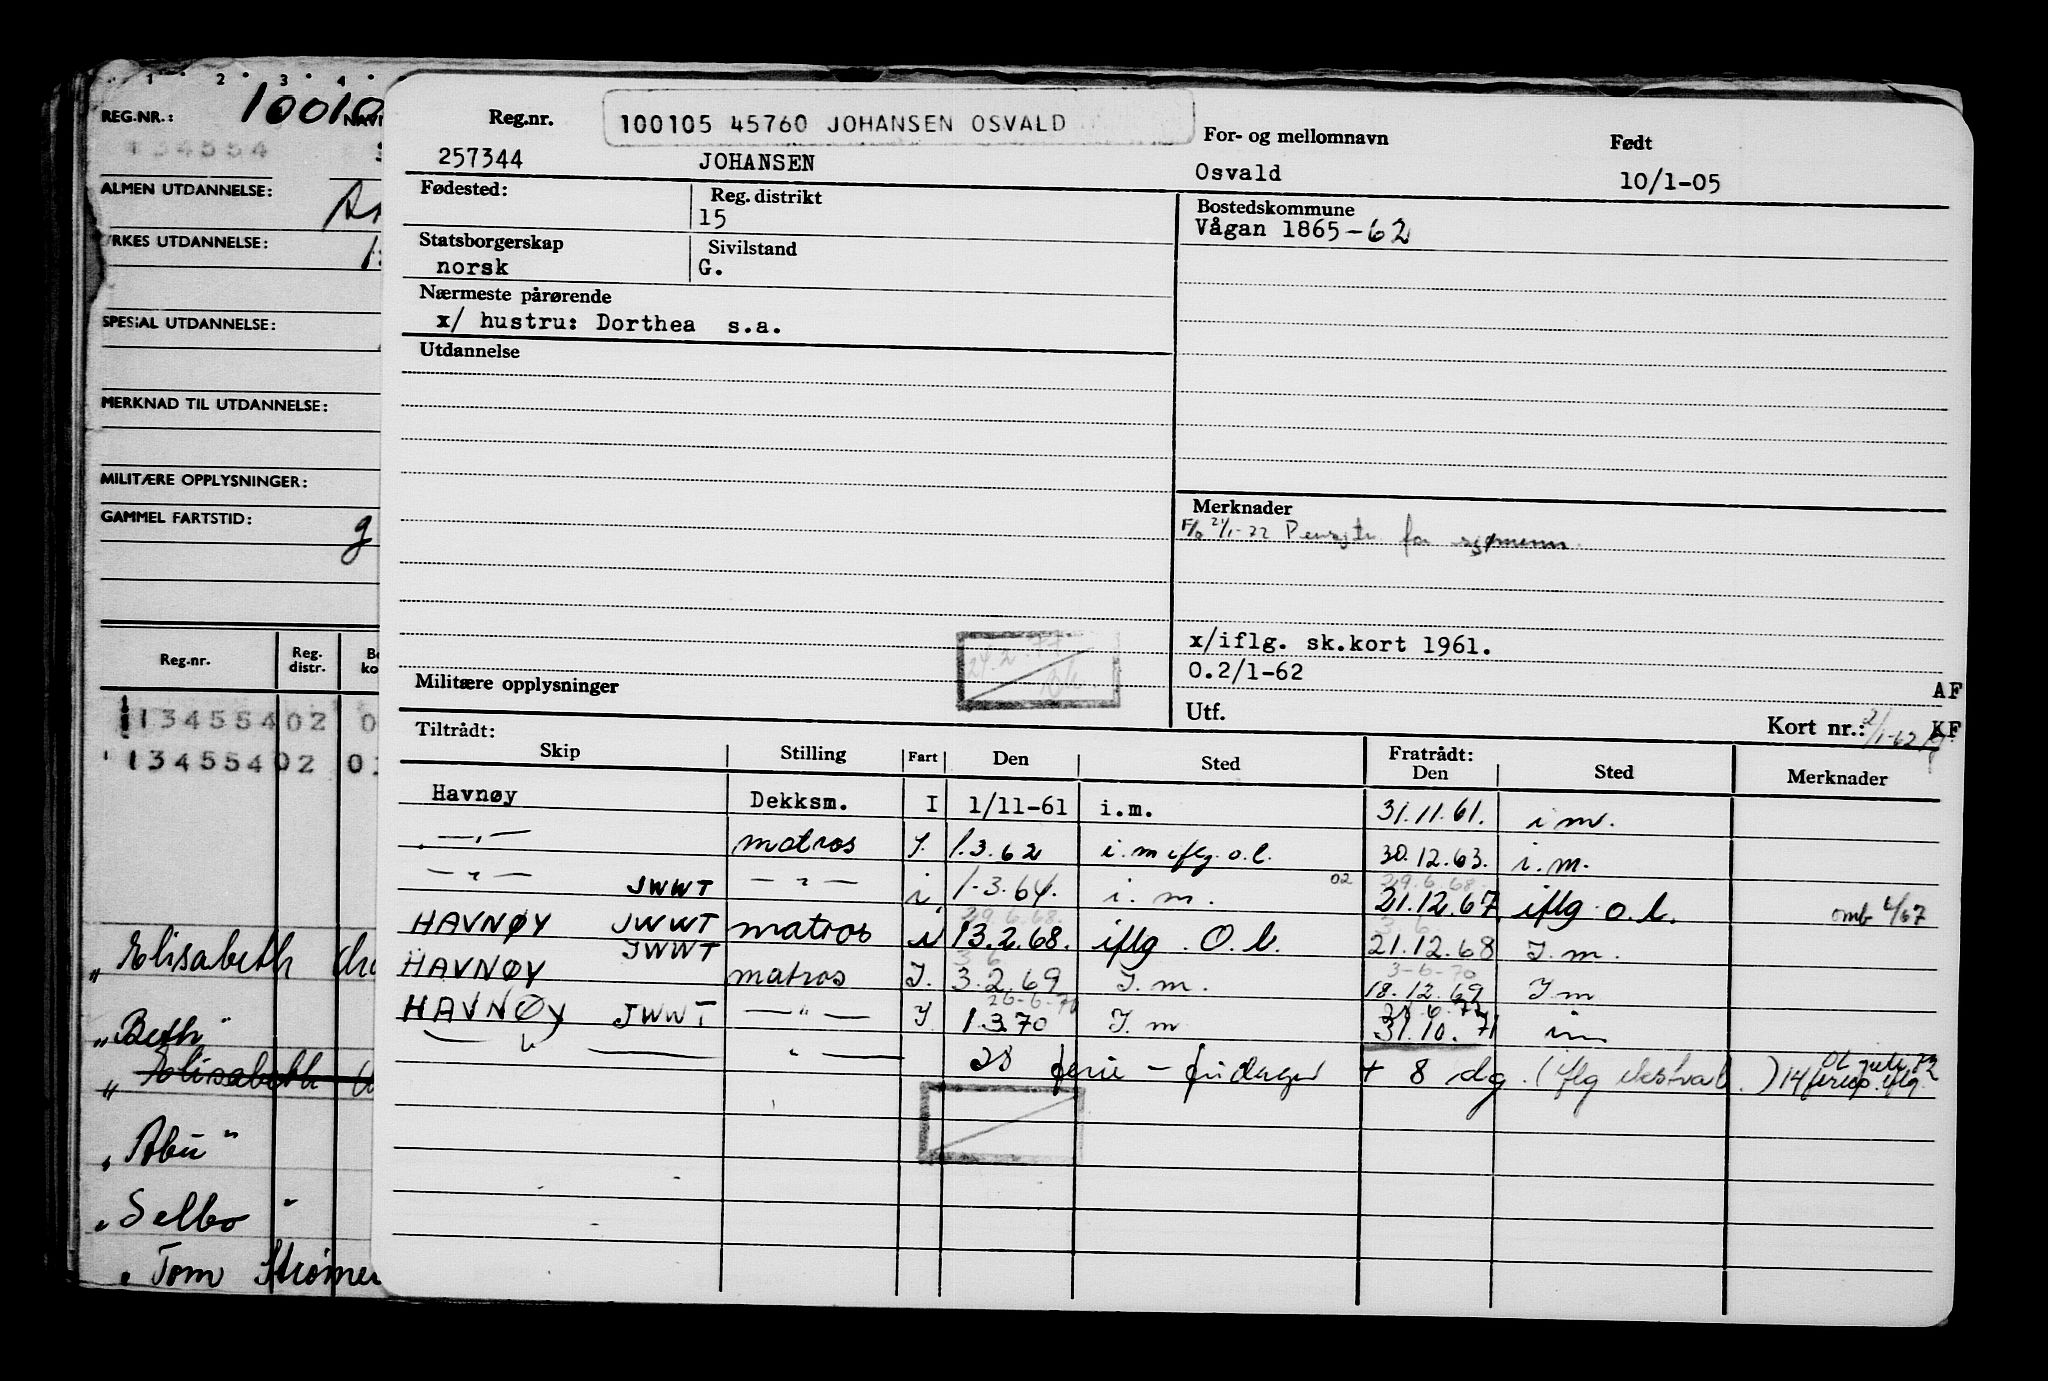 1 2 3 4
REG.NR.: 10010
134554
ALMEN UTDANNELSE:
YRKES UTDANNELSE:
SPESIAL UTDANNELSE:
MERKNAD TIL UTDANNELSE:
MILITÆRE OPPLYSNINGER:
GAMMEL FARTSTID: g
Reg.nr. Reg. distr.
13455402
13455402
„ Elisabeth
„ Beth "
„ Elisabeth
„ Abu "
„ Selbo "
„ Tom Strømer
Reg.nr. 100105 45760 JOHANSEN OSVALD For- og mellomnavn Født
257344 JOHANSEN Osvald 10/1-05
Fødested: Reg. distrikt Bostedskommune
15 Vågan 1865-62
Statsborgerskap Sivilstand
norsk G.
Nærmeste pårørende
x/ hustru: Dorthea s.a.
Utdannelse
Merknader
for sjømenn.
x/iflg. sk.kort 1961.
24.2.77
0.2/1-62
Militære opplysninger AF
Utf. Kort nr.: 2/1-62 KF
Tiltrådt: Fratrådt:
Skip Stilling Fart Den Sted Den Sted Merknader
Havnøy Dekksm. I 1/11-61 i.m. 31.11.61. i m.
— " — matros I. 1.3.62 i.m iflg. o.l. 30.12.63. i.m.
29.6.68.
— " — JWWT — " — i 1.3.64. i.m. 02 21.12.67 iflg o.l. omb 4/67
29.6.68. 3.6
HAVNØY JWWT matros i 13.2.68. iflg. O.l. 21.12.68 I.m.
3.6 3-6-70
HAVNØY JWWT matros I. 3.2.69 I.m. 18.12.69 I m
26-6-70
HAVNØY JWWT — " — I 1.3.70 I.m 31.10.71 im
— " — — " — 28 ferie - fridager + 8 dg. (iflg ekstrabl.) 14 feriep. iflg.